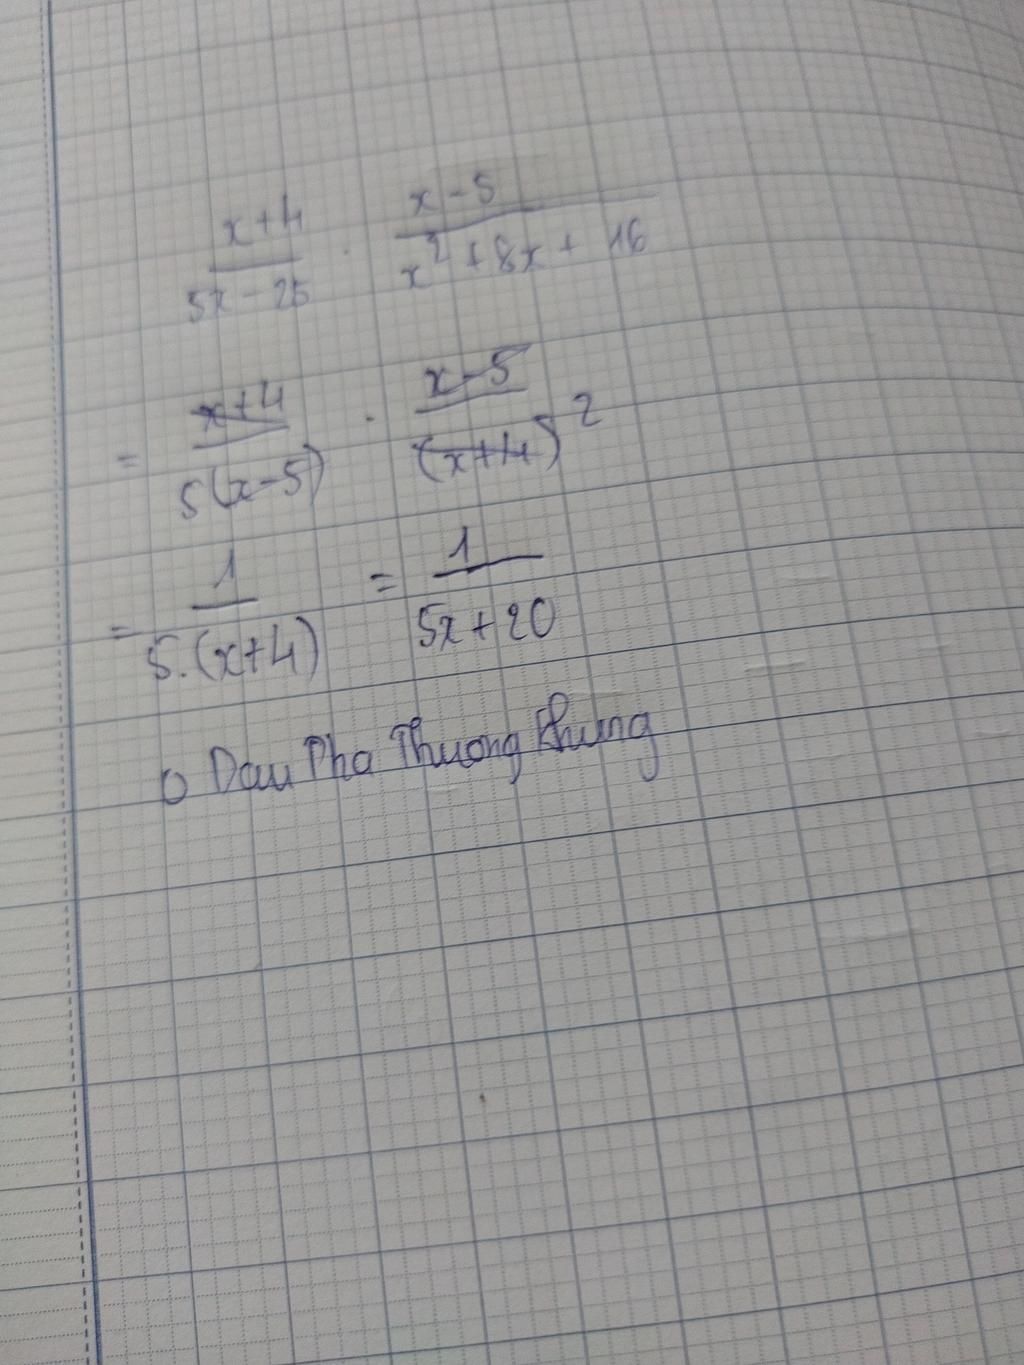 x+4/5x-25 . x-5/x²+8x+16
= x+4/5(x-5) . x-5/(x+4)²
= 1/5.(x+4) = 1/5x+20
o Dau Pha Thuong Khung